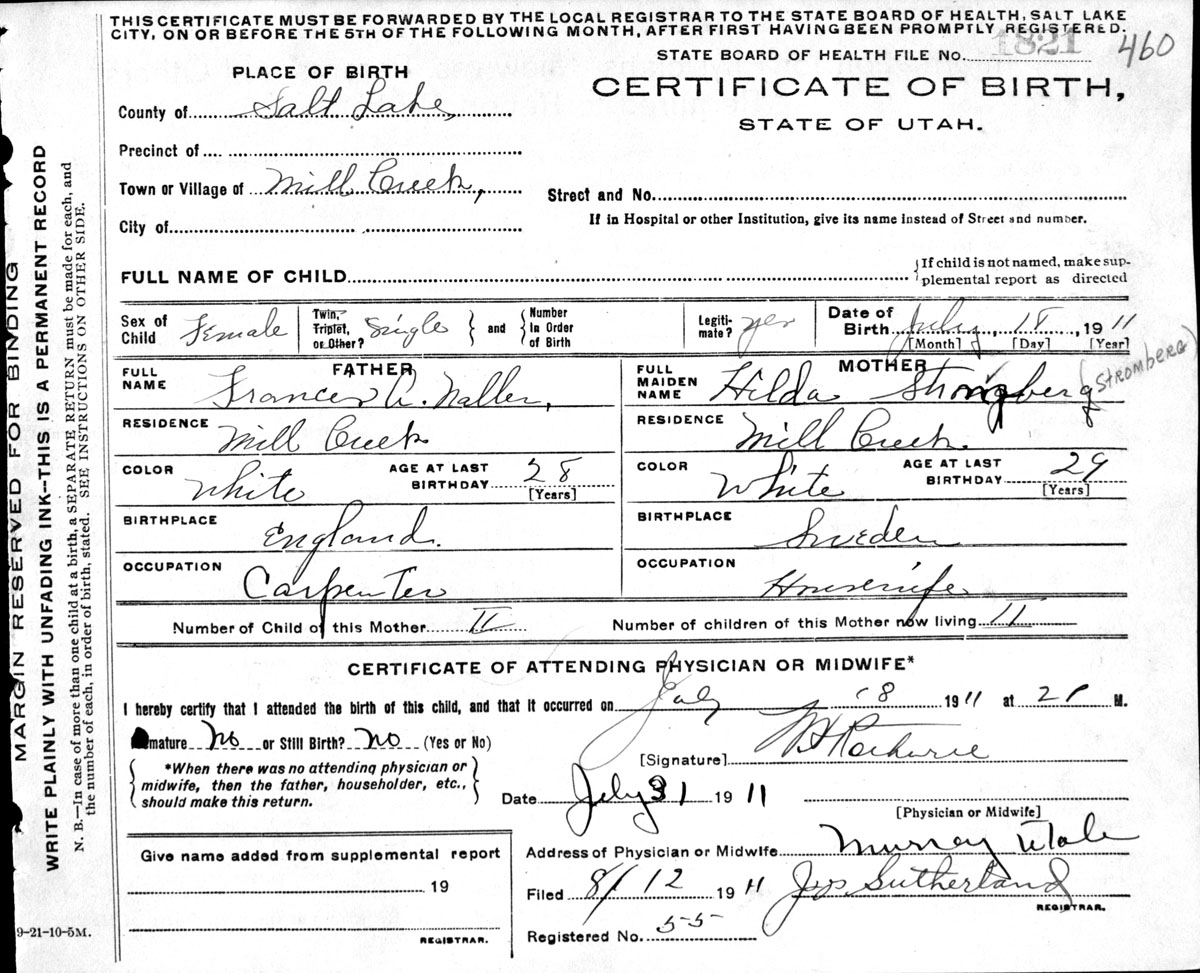 THIS CERTIFICATE MUST BE FORWARDED BY THE LOCAL REGISTRAR TO THE STATE BOARD OF HEALTH, SALT LAKE
CITY, ON OR BEFORE THE 5TH OF THE FOLLOWING MONTH, AFTER FIRST HAVING BEEN PROMPTLY REGISTERED.
STATE BOARD OF HEALTH FILE No. 1821 460
PLACE OF BIRTH
CERTIFICATE OF BIRTH,
STATE OF UTAH.
County of Salt Lake,
Precinct of
Town or Village of Mill Creek,
Street and No.
If in Hospital or other Institution, give its name instead of Street and number.
City of
FULL NAME OF CHILD
{If child is not named, make sup-
plemental report as directed
Sex of Child Female
Twin, Triplet, or Other? Single } and { Number In Order of Birth
Legiti-mate? yes
Date of Birth July, 18, 1911
[Month] [Day] [Year]
FATHER
FULL NAME Frances A. Naller,
RESIDENCE Mill Creek
COLOR White AGE AT LAST BIRTHDAY 28 [Years]
BIRTHPLACE England.
OCCUPATION Carpenter
MOTHER
FULL MAIDEN NAME Hilda (STROMBERG)
RESIDENCE Mill Creek
COLOR White AGE AT LAST BIRTHDAY 29 [Years]
BIRTHPLACE Sweden
OCCUPATION Housewife
Number of Child of this Mother II
Number of children of this Mother now living II
CERTIFICATE OF ATTENDING PHYSICIAN OR MIDWIFE*
I hereby certify that I attended the birth of this child, and that it occurred on July 18 1911 at 2 M.
mature No or Still Birth? No (Yes or No)
[Signature]
{ *When there was no attending physician or
midwife, then the father, householder, etc.,
should make this return. }
Date July 31 1911
[Physician or Midwife]
Give name added from supplemental report
19
REGISTRAR.
Address of Physician or Midwife Murray Utah
Filed 8/12 1911 Jos Sutherland
REGISTRAR.
Registered No. 55
9-21-10-5M.
MARGIN RESERVED FOR BINDING
WRITE PLAINLY WITH UNFADING INK--THIS IS A PERMANENT RECORD
N. B.—In case of more than one child at a birth, a SEPARATE RETURN must be made for each, and
the number of each, in order of birth, stated. SEE INSTRUCTIONS ON OTHER SIDE.